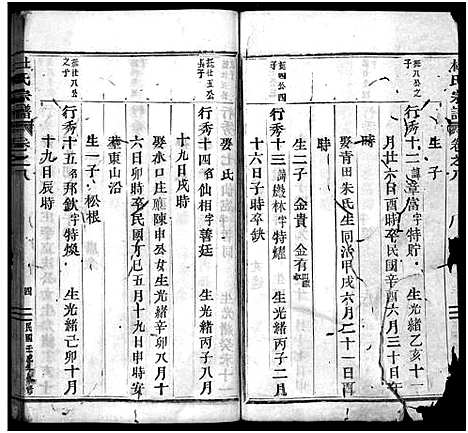 杜氏宗譜
卷之八
八
生子
行秀十二
字特貯
生光緒乙亥十一
月廿六日酉時卒民國辛酉六月三十日午
時
娶青田朱氏生同治甲戌六月二十一日酉
時
生二子
金貴
金有
廷四公四
子
行秀十三
諱啟林字特耀
生光緒丙子二月
十六日子時卒缺
娶氏
廷廿五公
子
行秀十四
名仙相字善廷
生光緒丙子八月
十九日戌時
娶水口厝陳申公女光緒辛卯八月十
六日卯時卒民國丁巳五月十九日申時安
葬東山沿
生一子
松根
廷廿八公
之子
行秀十五
名邦欽字特煥
生光緒己卯十月
十九日辰時
杜氏宗譜
卷之八
四
民國壬